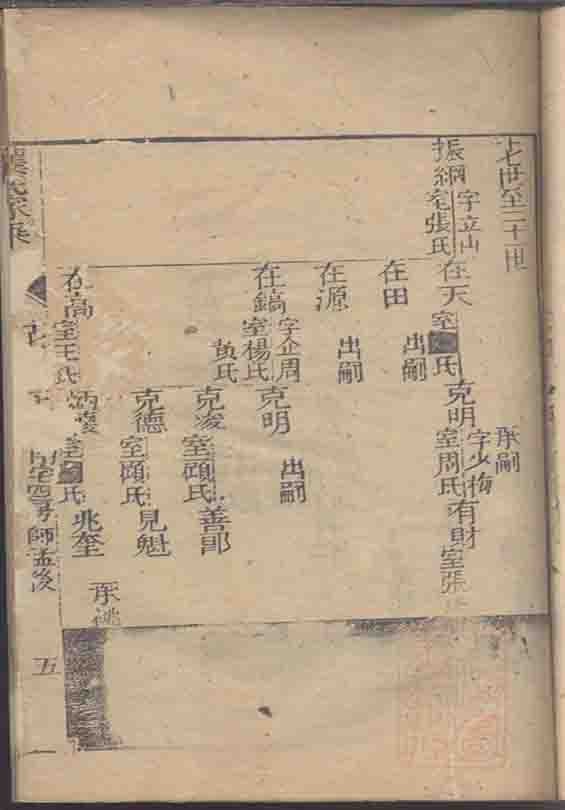 十七世至二十一世
振綱 字立山 室張氏
在天 室■氏
克明 承嗣 字少梅 室周氏
有財 室張
在田 出嗣
在源 出嗣
在鎬 字企周 室楊氏 黄氏
克明 出嗣
克凌 室顧氏
善郎
克德 室顧氏
見魁
在高 室王氏
室■氏
兆奎 承祧
氏家乘
師孟後
五